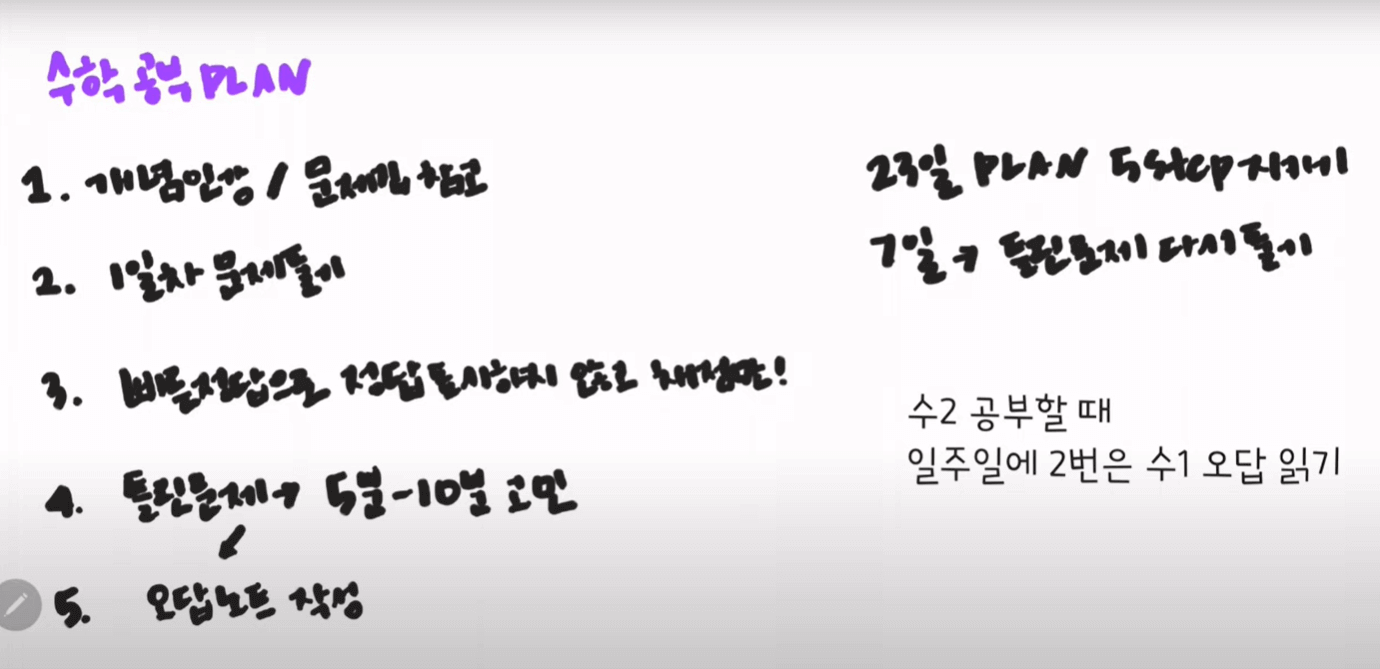 수학 공부 PLAN
1. 개념인강 / 문제집 참고
2. 1일차 문제풀기
3. 빠른정답으로 정답표시하지 않고 채점만!
4. 틀린문제→ 5분-10분 고민
↙
5. 오답노트 작성
23일 PLAN 5step지키기
7일→ 틀린문제 다시 풀기
수2 공부할 때
일주일에 2번은 수1 오답 읽기